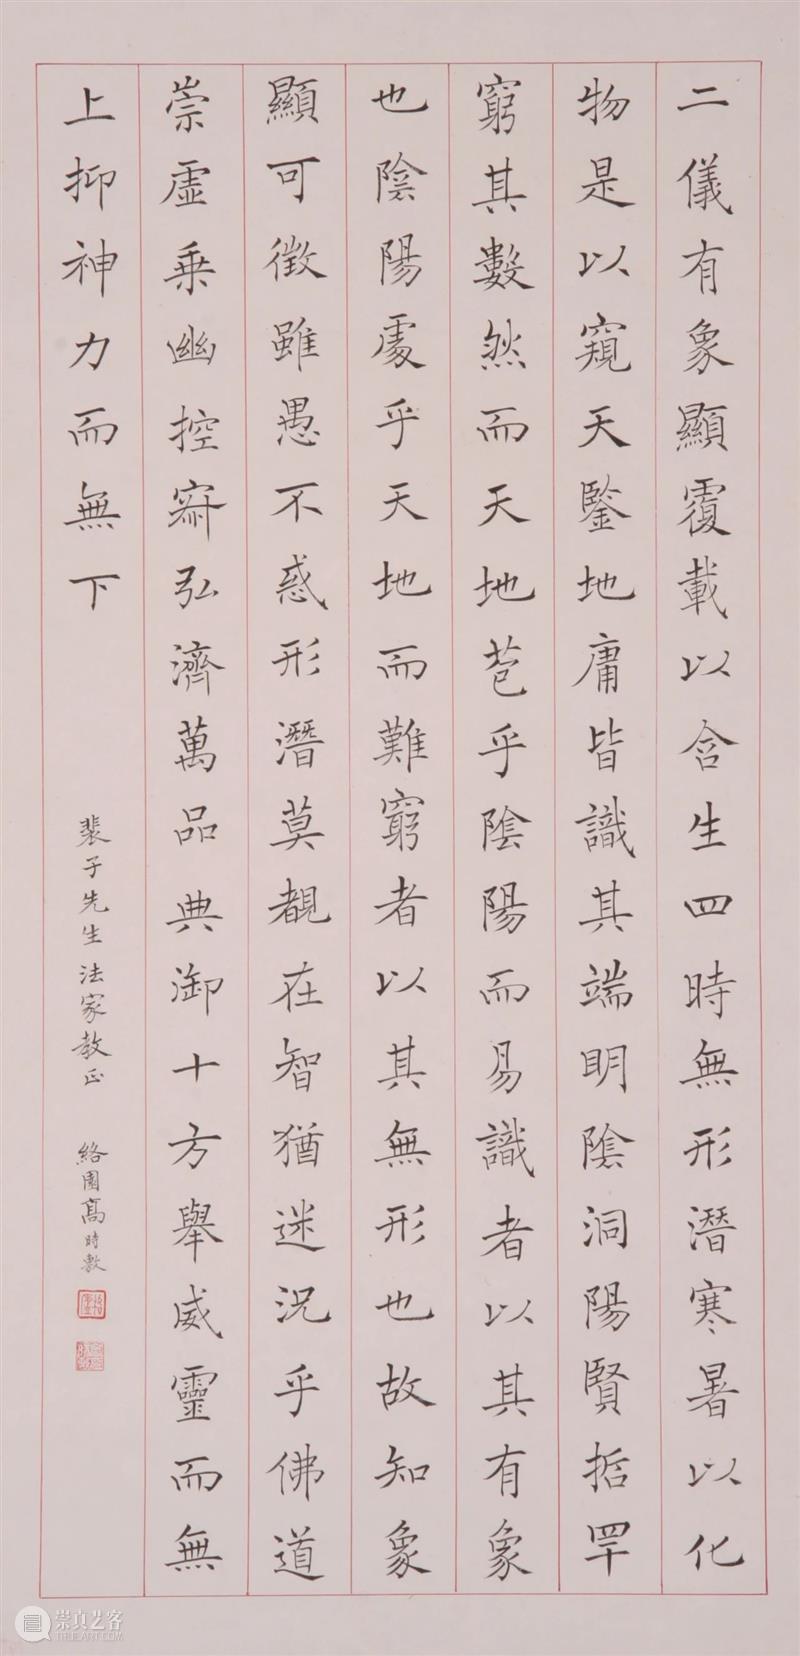 二儀有象顯覆載以含生四時無形潛寒暑以化
物是以窺天鑒地庸皆識其端明陰洞陽賢哲罕
窮其數然而天地苞乎陰陽而易識者以其有象
也陰陽處乎天地而難窮者以其無形也故知象
顯可徵雖愚不惑形潛莫覩在智猶迷況乎佛道
崇虛乗幽控寂弘濟萬品典御十方舉威靈而無
上抑神力而無下
裴子先生法家教正
絡園高時敷
崇真艺客